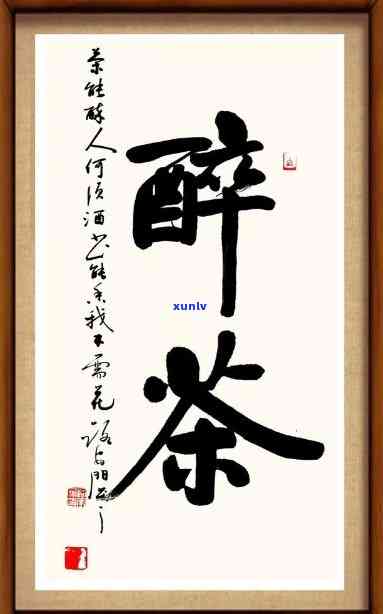 醉茶
茶能醉人何须酒书能香我不需花
xunlv